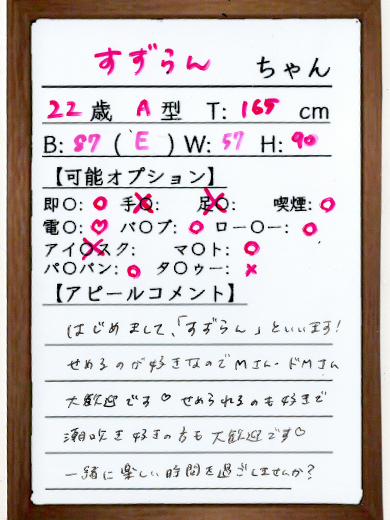 すずらん ちゃん
22歳 A型 T:165cm
B:87(E)W:57 H:90
【可能オプション】
即〇:○ 手〇:× 足〇:× 喫煙:○
電〇:♡ バ〇ブ:○ ロー〇ー:○
アイ〇スク:× マ〇ト:○
パ〇パン:○ タ〇ゥー:×
【アピールコメント】
はじめまして、「すずらん」といいます!
せめるのが好きなのでMさん・ドMさん
大歓迎です♡ せめられるのも好きで
潮吹き好きの方も大歓迎です♡
一緒に楽しい時間を過ごしませんか?